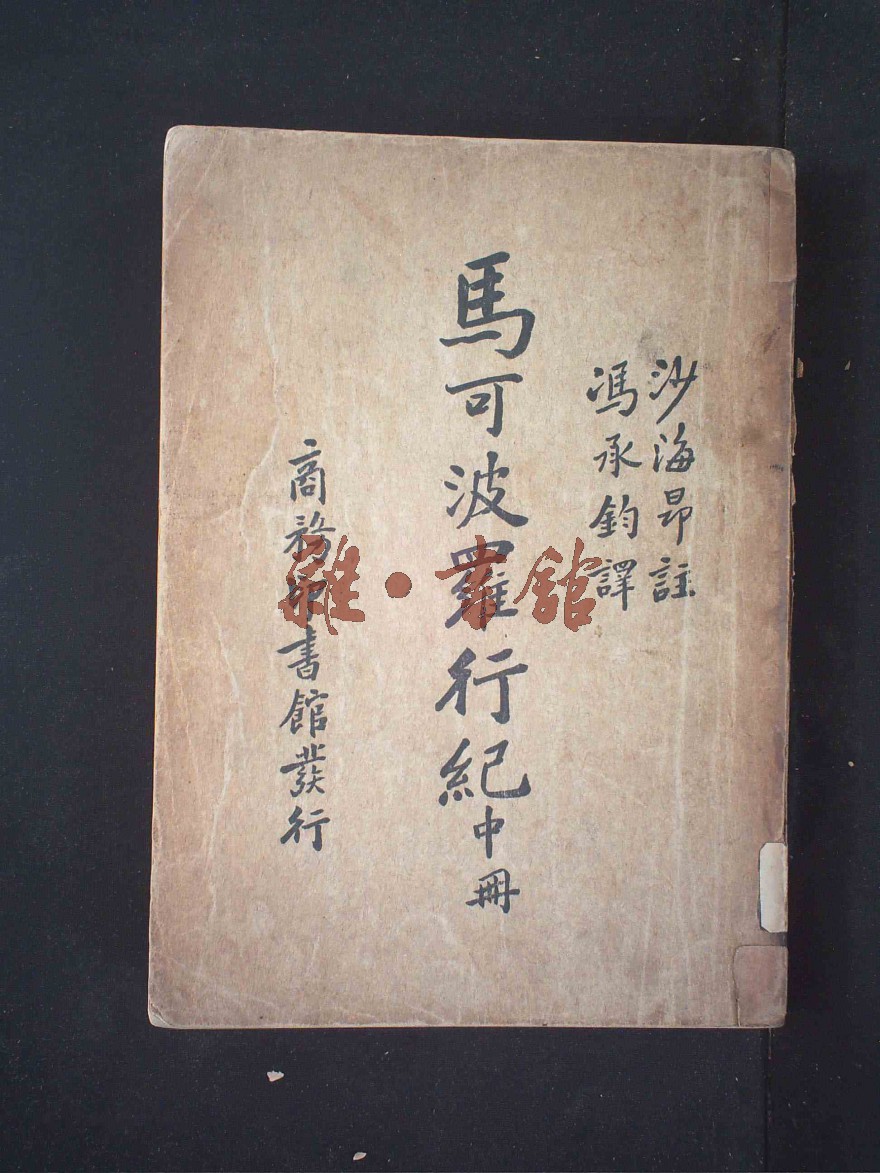 沙海昂註
馮承鈞譯
馬可波羅行紀中冊
商務印書館發行
雜·書館